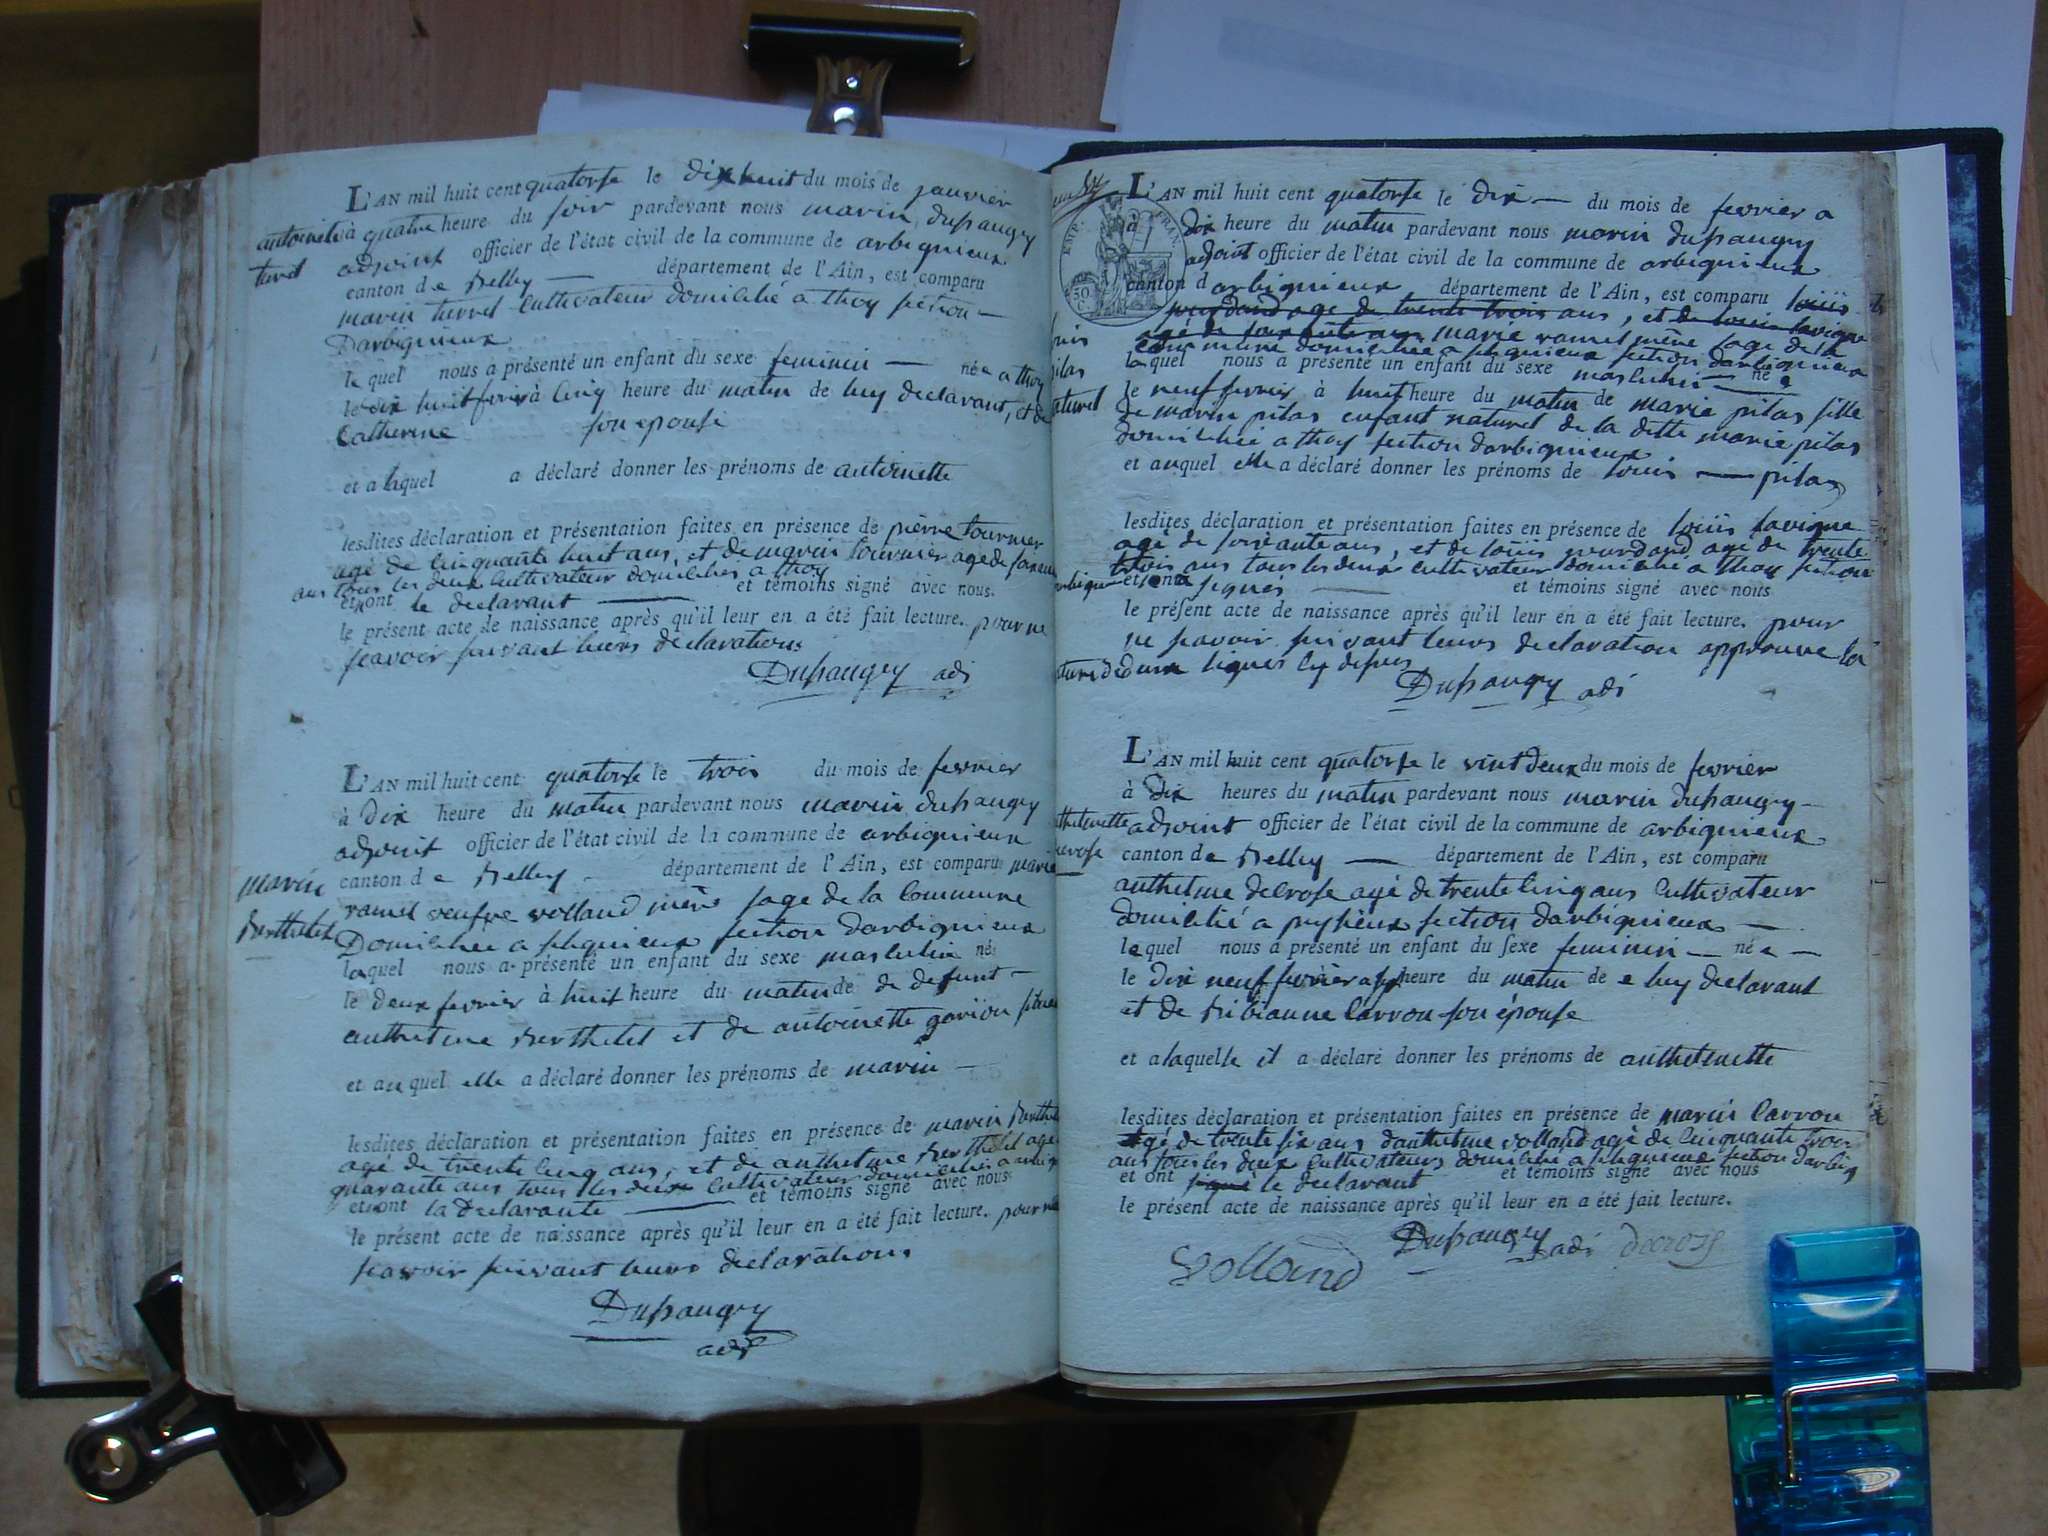 L'AN mil huit cent quatorse le dix huit du mois de janvier
à quatre heure du soir pardevant nous marin dupaugey
antoinette
turret
adjoint officier de l'état civil de la commune de arbignieux
canton de Belley — département de l'Ain, est comparu
marin turret cultivateur domicilié a thoy section —
Darbignieux
le quel nous a présenté un enfant du sexe feminin — née a thoy
le dix huit à cinq heure du matin de luy declarant, et de
Catherine son epouse
et a laquel a déclaré donner les prénoms de antoinette
lesdites déclaration et présentation faites en présence de pierre fournier
agé de cinquante huit ans, et de marin fournier agé de
ans tous les deux cultivateur domiciliés a thoy
et ont le declarant — et témoins signé avec nous.
le présent acte de naissance après qu'il leur en a été fait lecture. pour ne
scavoir suivant leurs declarations
Dupaugey adj
L'AN mil huit cent quatorse le trois du mois de fevrier
à dix heure du matin pardevant nous marin dupaugey
adjoint officier de l'état civil de la commune de arbignieux
canton de Belley - département de l'Ain, est comparu marie
marin
Berthelet
ramel veufve volland mère sage de la commune
Domiciliée a slignieux section darbignieux
laquel nous a présenté un enfant du sexe masculin né
le deux fevrier à huit heure du matin de de defunt —
anthelme Berthelet et de antoinette
et au quel elle a déclaré donner les prénoms de marin —
lesdites déclaration et présentation faites en présence de marin
agé de trente cinq ans, et de anthelme Berthelet agé
quarante ans tous les deux cultivateur domiciliés a
et ont la declarante — et témoins signé avec nous
le présent acte de naissance après qu'il leur en a été fait lecture. pour ne
scavoir suivant leurs declarations
Dupaugey
adj
L'AN mil huit cent quatorse le dix — du mois de fevrier a
à dix heure du matin pardevant nous marin dupaugey
EMP. FRAN.
50 C.
adjoint officier de l'état civil de la commune de arbignieux
canton d arbignieux département de l'Ain, est comparu louis
agé de trente trois ans, et de louis lavigne
agé de soixante ans marie ramel mère sage de la
commune domiciliée a slignieux section darbignieux
laquel nous a présenté un enfant du sexe masculin — né
le neuf fevrier à huit heure du matin de marie pilas fille
de marin pilas enfant naturel de la ditte marie pilas
domiciliée a thoy section darbignieux
et auquel elle a déclaré donner les prénoms de louis — pilas
lesdites déclaration et présentation faites en présence de louis lavigne
agé de soixante ans, et de louis agé de trente
trois ans tous les deux cultivateur domicilié a thoy section
et ont signés — et témoins signé avec nous
le présent acte de naissance après qu'il leur en a été fait lecture. pour
ne scavoir suivant leurs declaration approuve la
deux lignes cy
Dupaugey adj
L'AN mil huit cent quatorse le vint deux du mois de fevrier
à dix heures du matin pardevant nous marin dupaugey —
adjoint officier de l'état civil de la commune de arbignieux
canton de Belley — département de l'Ain, est comparu
anthelme decrose agé de trente cinq ans cultivateur
domicilié a peyzieux section darbignieux —
lequel nous a présenté un enfant du sexe feminin — née —
le dix neuf fevrier a heure du matin de luy declarant
et de Bibianne Carron son épouse
et a laquelle il a déclaré donner les prénoms de anthelmette
lesdites déclaration et présentation faites en présence de marin Carron
agé de trente six ans danthelme volland agé de cinquante trois
ans tous les deux cultivateurs domicilié a slignieux section darbig
et ont signé le declarant et témoins signé avec nous
le présent acte de naissance après qu'il leur en a été fait lecture.
Volland Dupaugey adj decrose